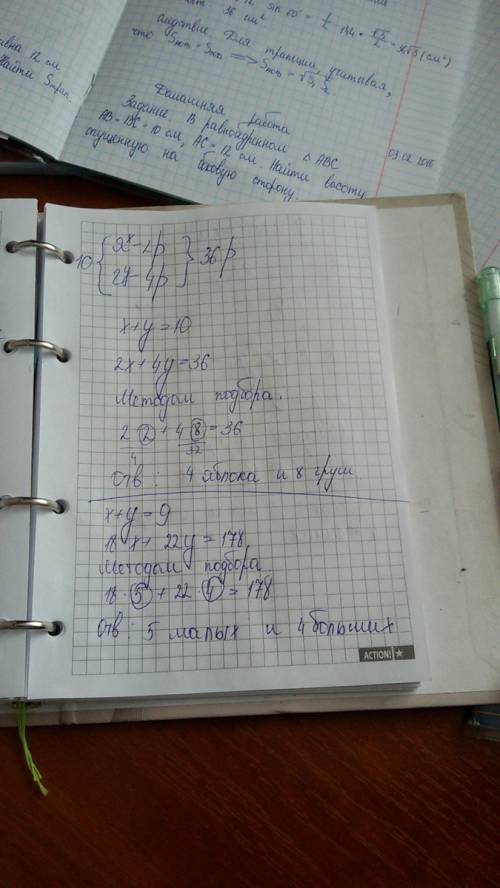 12 sin 60° = 1/2 · 144 · √3/2 = 36√3 (см²)
36 см²
следствие Для трапеции, учитывая,
что
равна 12 см
Найти Sтрап.
Домашняя работа
03.02.2016
Задание. В равнобедренном △ ABC
AB = BC = 10 см, AC = 12 см. Найти высоту
опущенную на боковую сторону.
10 { 2y - 4p } 36 p
x+y=10
2x+4y=36
Методом подбора.
2 · 2 + 4 · 8 = 36
4 32
Отв: 4 яблока и 8 груш
x+y=9
18 x + 22y = 178
Методом подбора
18 · 5 + 22 · 4 = 178
Отв: 5 малых и 4 больших
ACTION!